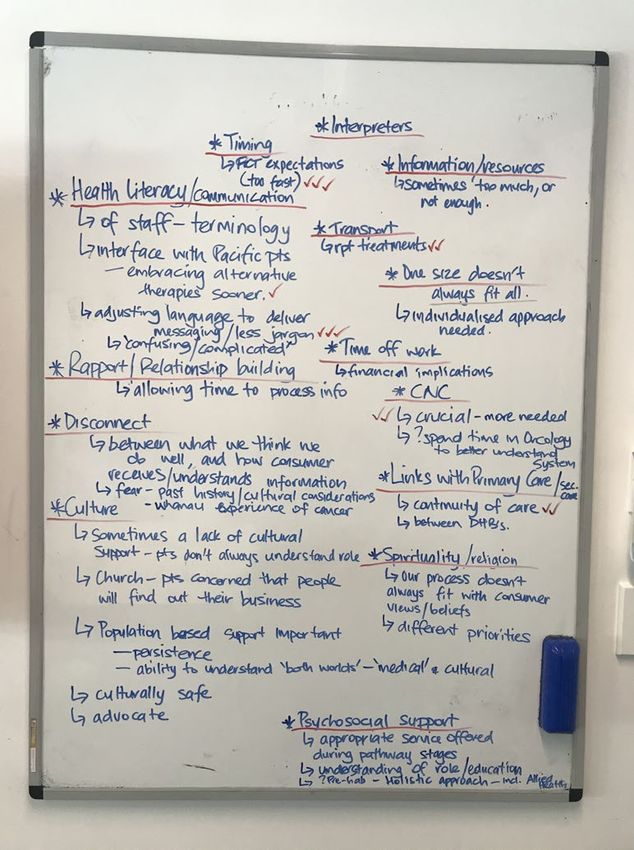 * Interpreters
* Timing
↳ FCT expectations
(too fast) ✓✓✓
* Information/resources
↳ sometimes 'too much, or
not enough.
* Health Literacy/communication
↳ of staff - terminology
↳ interface with Pacific pts
- embracing alternative
therapies sooner. ✓
↳ adjusting language to deliver
messaging/less jargon ✓✓✓
↳ "confusing/complicated"
* Transport
↳ rpt treatments ✓✓
* One size doesn't
always fit all.
↳ individualised approach
needed.
* Rapport/Relationship building
↳ allowing time to process info
* Time off work
↳ financial implications
* CNC
✓✓ ↳ crucial - more needed
↳ ? spend time in Oncology
to better understand
system
* Disconnect
↳ between what we think we
do well, and how consumer
receives/understands information
↳ fear - past history/cultural considerations
- whanau experience of cancer
* Links with Primary Care/sec.
care
↳ continuity of care ✓✓
↳ between DHB's.
* Culture
↳ Sometimes a lack of cultural
support - pts don't always understand role
↳ Church - pts concerned that people
will find out their business
↳ Population based support important
- persistence
- ability to understand 'both worlds' - 'medical' & cultural
↳ culturally safe
↳ advocate
* Spirituality/religion
↳ our process doesn't
always fit with consumer
views/beliefs
↳ different priorities
* Psychosocial Support
↳ appropriate service offered
during pathway stages
↳ understanding of role/education
↳ ? Pre-hab - Holistic approach - incl. Allied
Health